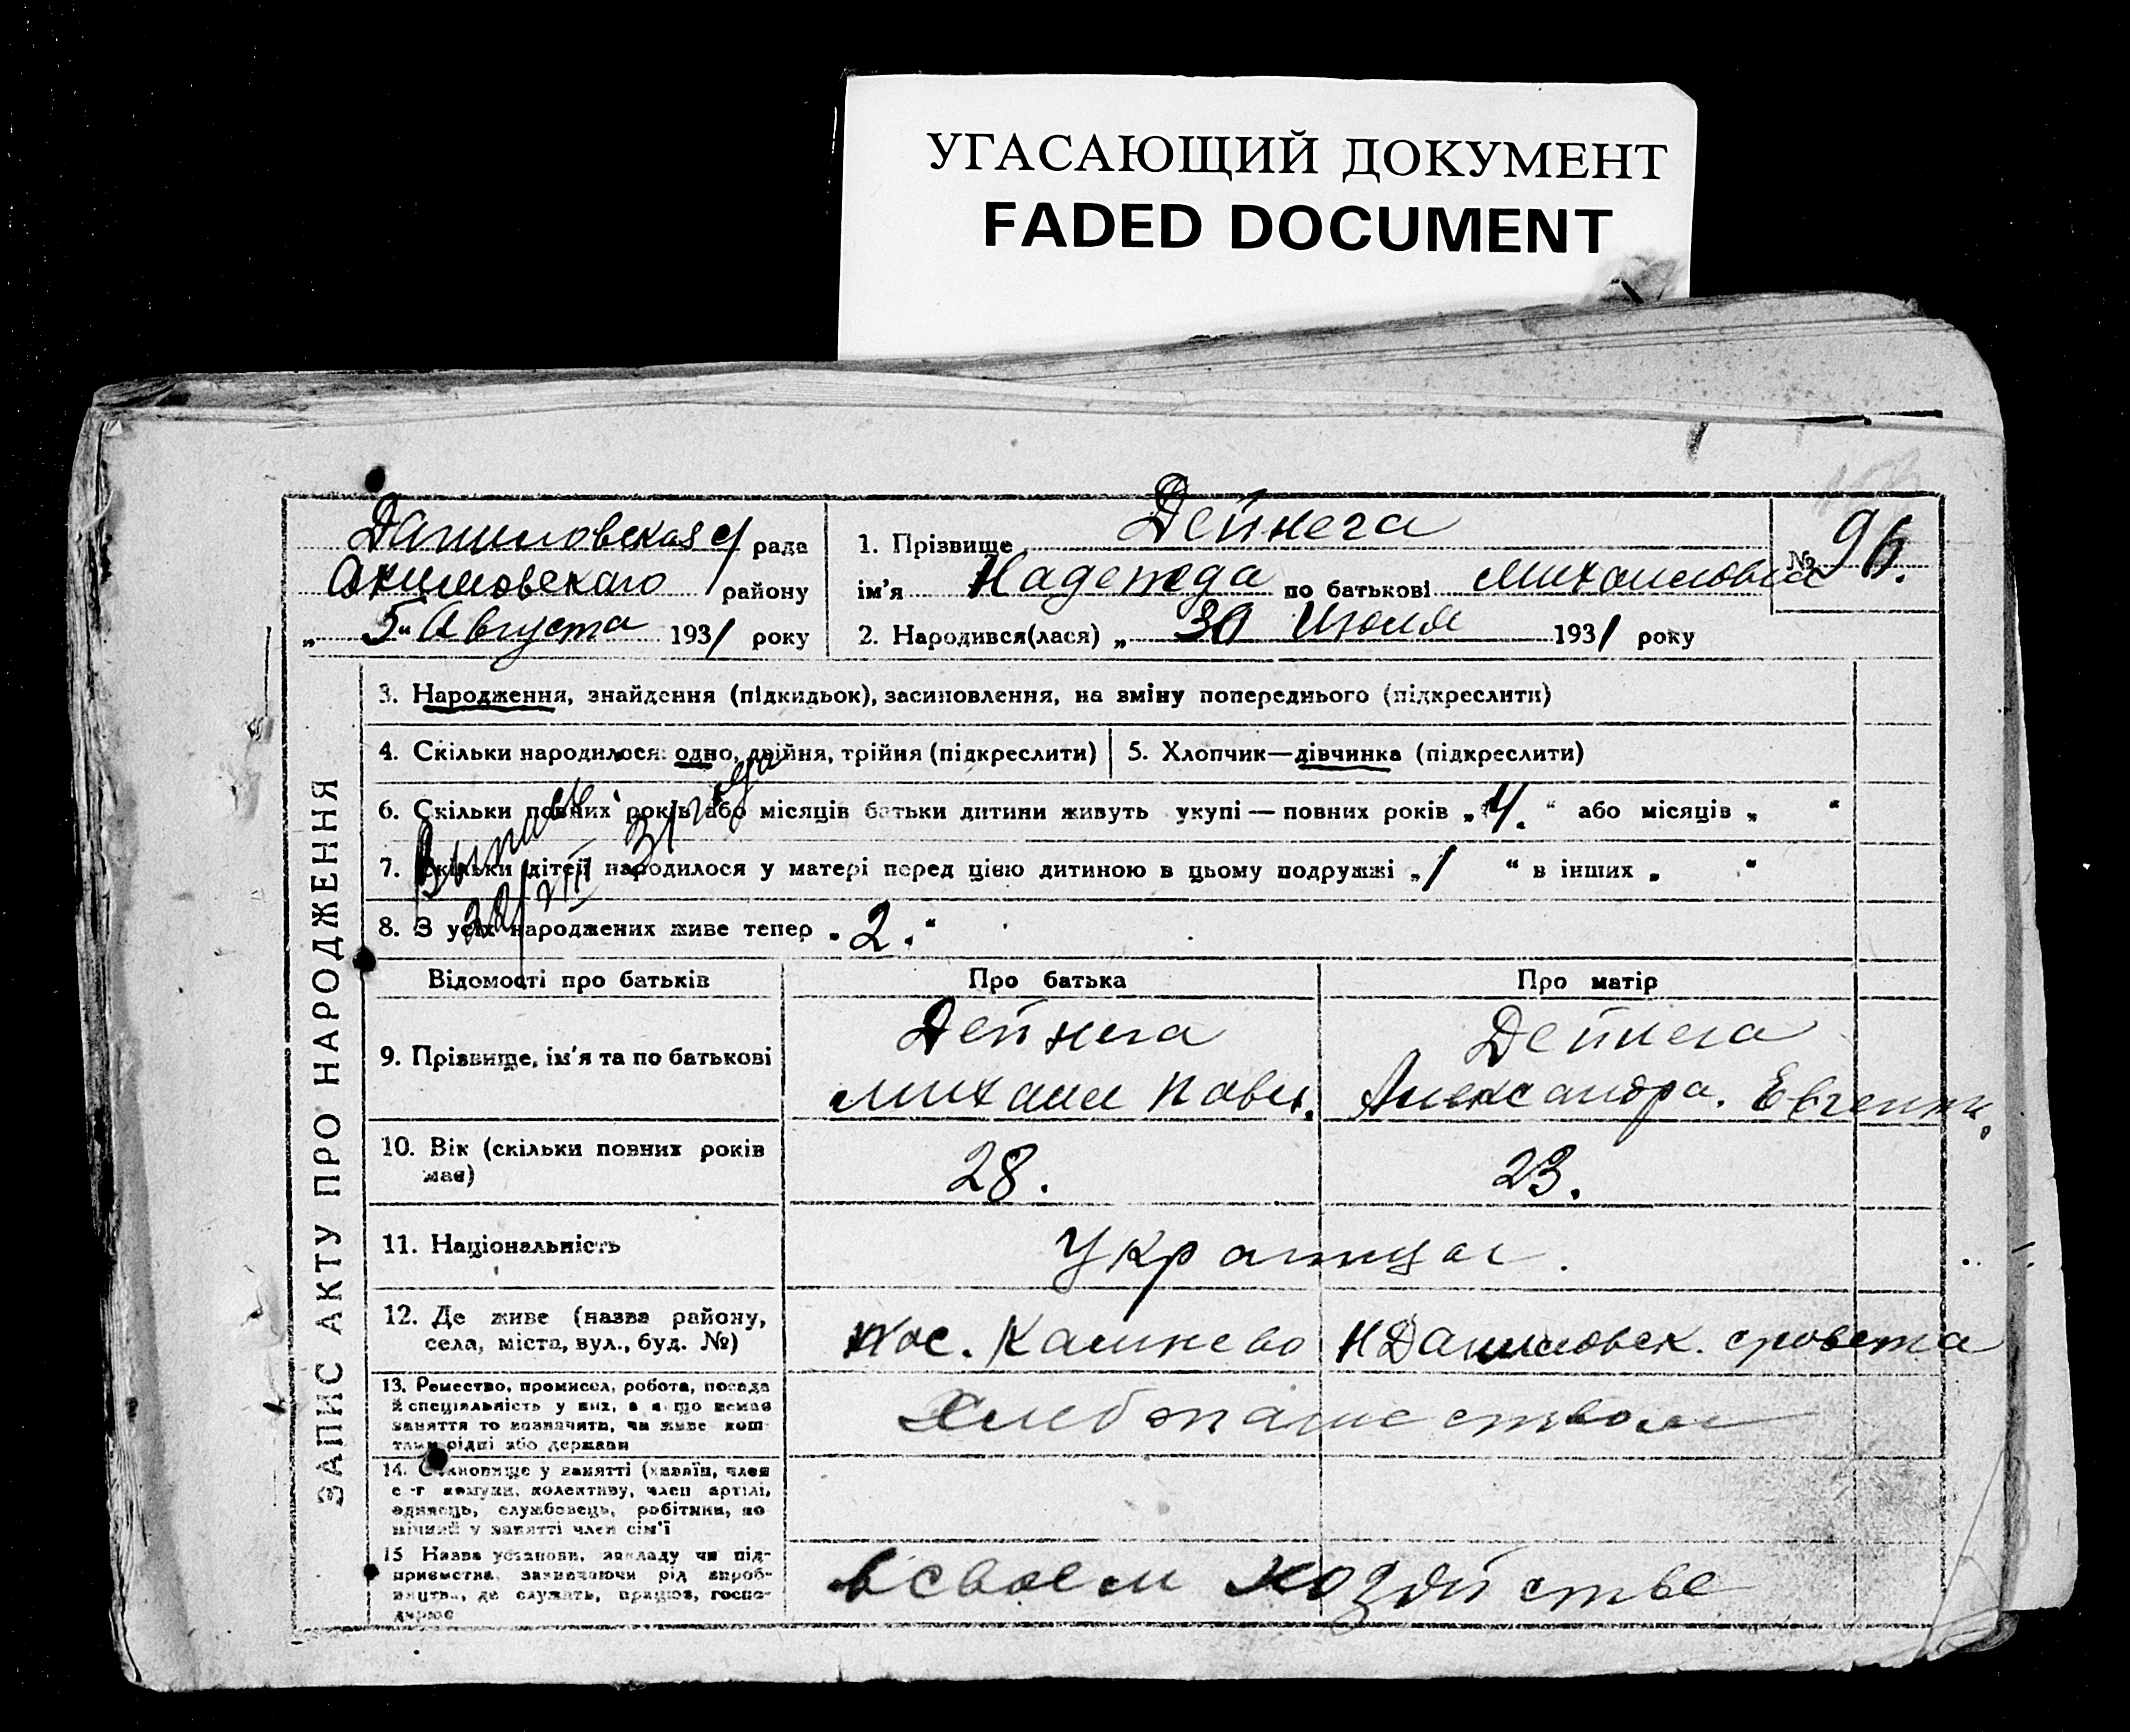 УГАСАЮЩИЙ ДОКУМЕНТ
FADED DOCUMENT
ЗАПИС АКТУ ПРО НАРОДЖЕННЯ
Даниловская с/ рада
Акимовского району
„ 5 " Августа 1931 року
1. Прізвище Дейнега
ім'я Надежда по батькові Михаиловна
№ 96.
2. Народився(лася) „ 30 Июля 1931 року
3. Народження, знайдення (підкидьок), засиновлення, на зміну попереднього (підкреслити)
4. Скільки народилося: одно, двійня, трійня (підкреслити)
5. Хлопчик—дівчинка (підкреслити)
6. Скільки повних років або місяців батьки дитини живуть укупі — повних років „ 4. " або місяців „ "
7. Скільки дітей народилося у матері перед цією дитиною в цьому подружжі „ 1 " в інших „ "
8. З усіх народжених живе тепер „ 2. "
31 года
Відомості про батьків
Про батька
Про матір
9. Прізвище, ім'я та по батькові
Дейнега
Михаил Павл.
Дейнега
Александра. Евгени.
10. Вік (скільки повних років має)
28.
23.
11. Національність
Украинцы.
12. Де живе (назва району,
села, міста, вул., буд. №)
пос. Камнево Н Даниловск. с/совета
13. Ремество, промисел, робота, посада
й спеціяльність у них, а якщо немає
заняття то зазначити, чи живе кош-
тами рідні або держави
Хлебопашеством
14. Становище у занятті (хазяїн, член
с.-г комуни, колективу, член артілі,
одинець, службовець, робітник, по
мічний у занятті член сім'ї
15 Назва установи, закладу чи під-
приємства, зазначаючи рід вироб-
ництва, де служить, працює, госпо-
дарює
в своем хозяйстве